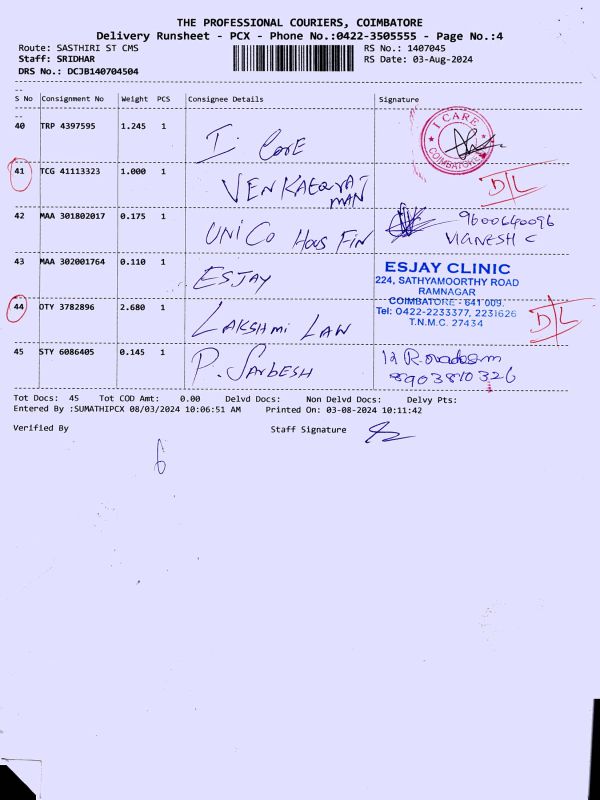 THE PROFESSIONAL COURIERS, COIMBATORE
Delivery Runsheet - PCX - Phone No.:0422-3505555 - Page No.:4
Route: SASTHIRI ST CMS RS No.: 1407045
Staff: SRIDHAR RS Date: 03-Aug-2024
DRS No.: DCJB140704504
S No Consignment No Weight PCS Consignee Details Signature
40 TRP 4397595 1.245 1 I. Care
I CARE
COIMBATORE
41 TCG 41113323 1.000 1 VENKATARAT
MAN D/L
42 MAA 301802017 0.175 1 UNICO Hous FIN 9600640096
VIGNESH C
43 MAA 302001764 0.110 1 ESJAY
ESJAY CLINIC
224, SATHYAMOORTHY ROAD
RAMNAGAR
COIMBATORE - 641 009.
Tel: 0422-2233377, 2231626
T.N.M.C. 27434
44 DTY 3782896 2.680 1 LAKSHMI LAW D/L
45 STY 6086405 0.145 1 P. SARBESH
8903810326
Tot Docs: 45 Tot COD Amt: 0.00 Delvd Docs: Non Delvd Docs: Delvy Pts:
Entered By :SUMATHIPCX 08/03/2024 10:06:51 AM Printed On: 03-08-2024 10:11:42
Verified By Staff Signature
6